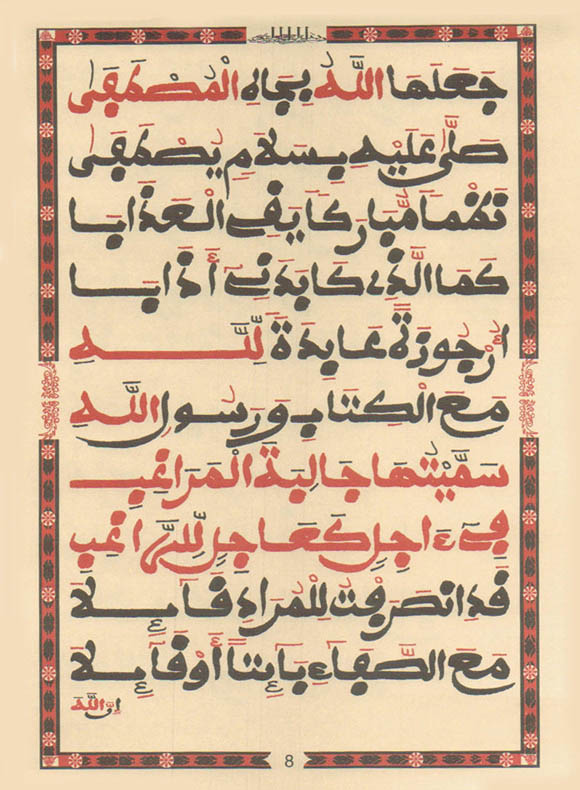 جَعَلَهَا اللَّهُ بِجَاهِ الْمُصْطَفَى
صَلَّى عَلَيْهِ بِسَلَامٍ يُصْطَفَى
نَظْماً مُبَارَكاً يَقِي الْعَذَابَا
كَمَا الَّذِي كَابَدَنِي أَذَابَا
أُرْجُوزَةً عَابِدَةً لِلَّهِ
مَعَ الْكِتَابِ وَرَسُولِ اللَّهِ
سَمَّيْتُهَا جَالِبَةَ الْمَرَاغِبِ
فِي ءَاجِلٍ كَعَاجِلٍ لِلرَّاغِبِ
قَدِ انْصَرَفْتُ لِلْمُرَادِ قَآئِلَا
مَعَ الصَّفَاءِ بَآئِتاً أَوْ قَآئِلَا
إِنَّ اللَّهَ
8